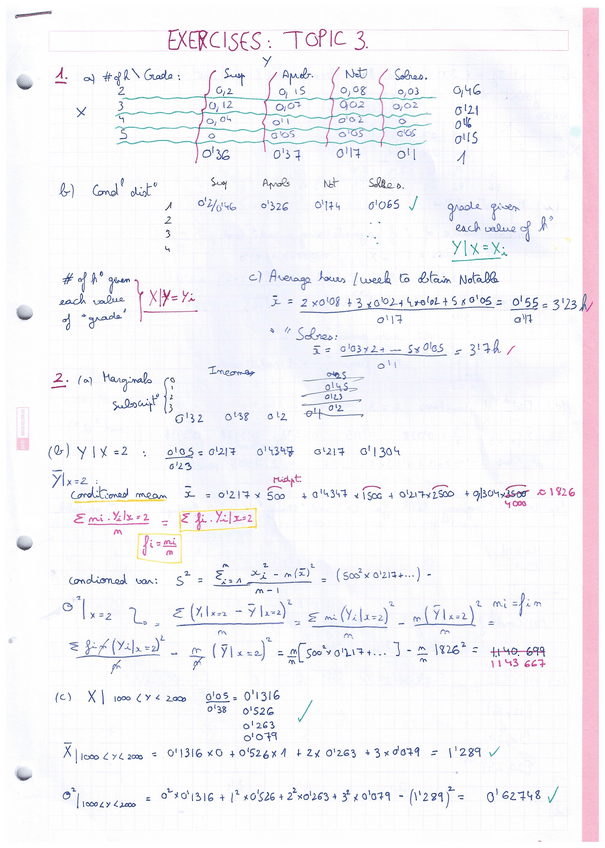 EXERCISES: TOPIC 3.
Y
1. a) # of h \ Grade: Susp Aprob. Not Sobres.
2 0,2 0,15 0,08 0,03 0,46
X 3 0,12 0,07 0,02 0,02 0'21
4 0,04 0'1 0'02 0 0'16
5 0 0'05 0'05 0'05 0'15
0'36 0'37 0'17 0'1 1
b) Cond¹ dist° Susp Aprob Not Sobres.
1 0'2/0'46 0'326 0'174 0'065 ✓ grade given
2 each value of h°
3 Y|X = Xi
4
# of h° given
each value X|Y = Yi
of "grade"
c) Average hours / week to obtain Notable
x̄ = 2 x 0'08 + 3 x 0'02 + 4 x 0'02 + 5 x 0'05 = 0'55 = 3'23 h ✓
0'17 0'17
" " Sobres:
x̄ = 0'03 x 2 + -- 5 x 0'05 = 3'7 h ✓
0'1
2. (a) Marginals 0 Incomes 0'25
1 0'45
subscript° 2 0'23
3 0'2
0'32 0'38 0'2 0'1
(b) Y | X = 2 : 0'05 = 0'217 0'4347 0'217 0'1304
0'23
Ȳ|x=2 : midpt
Conditioned mean x̄ = 0'217 x 500 + 0'4347 x 1500 + 0'217 x 2500 + 0,1304 x 3500 = 1826
4000
Σ mi · Yi|x=2 = Σ fi · Yi|x=2
m
fi = mi/m
condioned var: S² = Σ xi² - m(x̄)² = (500² x 0'217 + ...) -
m - 1
σ²|x=2 = Σ (Yi|x=2 - Ȳ|x=2)² = Σ mi (Yi|x=2)² - m(Ȳ|x=2)² = mi = fi m
m m m
Σ fi m (Yi|x=2)² - m (Ȳ|x=2)² = m/m [500² x 0'217 + ...] - m/m 1826² = 1140 699
m m 1143 667
(c) X | 1000 < Y < 2000 0'05 = 0'1316
0'38 0'526
0'263 ✓
0'079
X̄|1000 < Y < 2000 = 0'1316 x 0 + 0'526 x 1 + 2 x 0'263 + 3 x 0'079 = 1'289 ✓
σ²|1000 < Y < 2000 = 0² x 0'1316 + 1² x 0'526 + 2² x 0'263 + 3² x 0'079 - (1'289)² = 0'62748 ✓